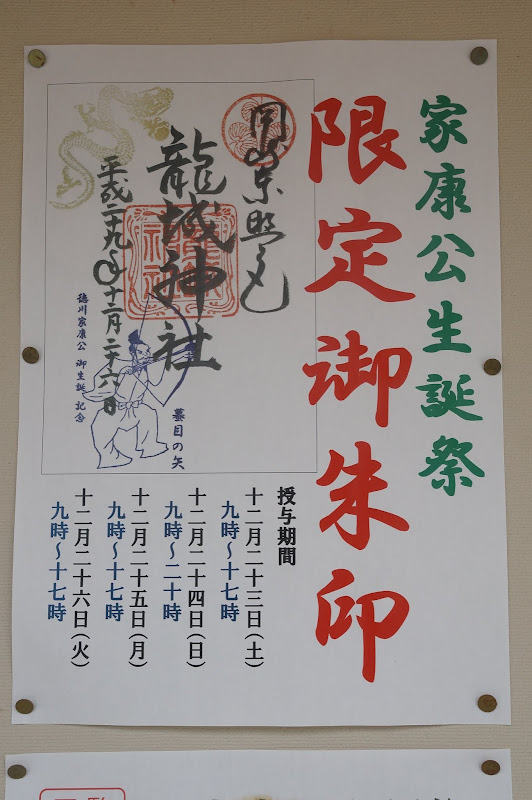 家康公生誕祭
限定御朱印
岡崎東照宮
龍城神社
平成二十九年十二月二十六日
徳川家康公 御生誕 記念
蟇目の矢
授与期間
十二月二十三日(土)
九時〜十七時
十二月二十四日(日)
九時〜二十時
十二月二十五日(月)
九時〜十七時
十二月二十六日(火)
九時〜十七時